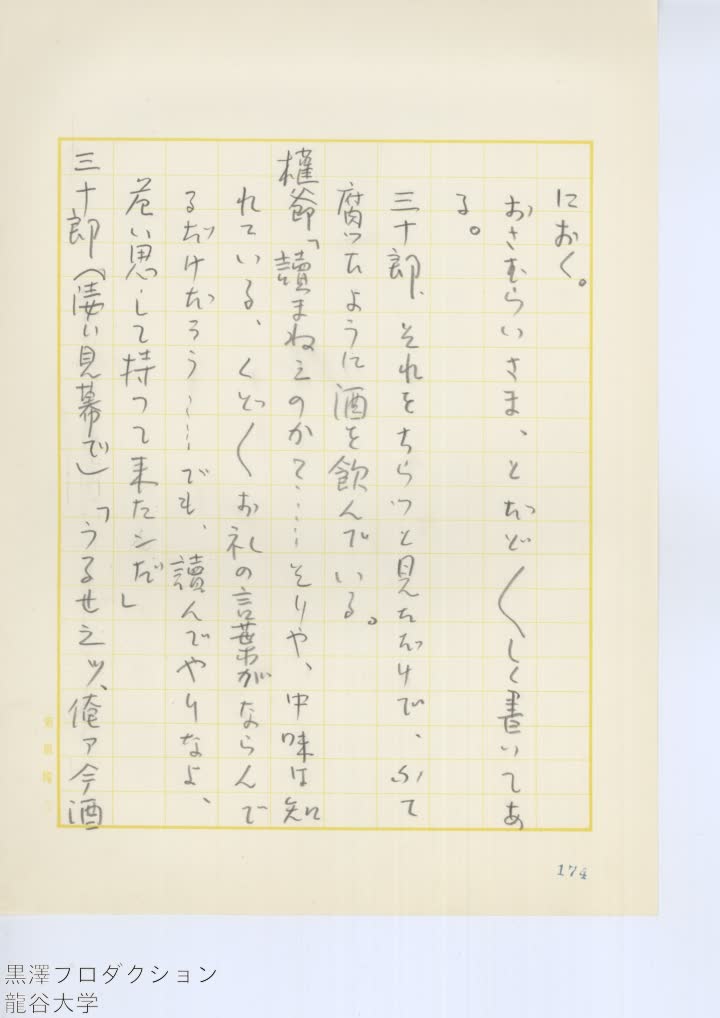 におく。
おさむらいさま、とたど〱しく書いてあ
る。
三十郎、それをちらツと見ただけで、ふて
腐ツたように酒を飲んでいる。
権爺「讀まねえのかて……そりや、中味は知
れている、くど〱お礼の言葉がならんで
るだけだろう……でも、讀んでやりなよ、
危い思いして持つて来たンだ」
三十郎（凄い見幕で）「うるせえツ、俺ァ今酒
174
黒澤プロダクション
龍谷大学